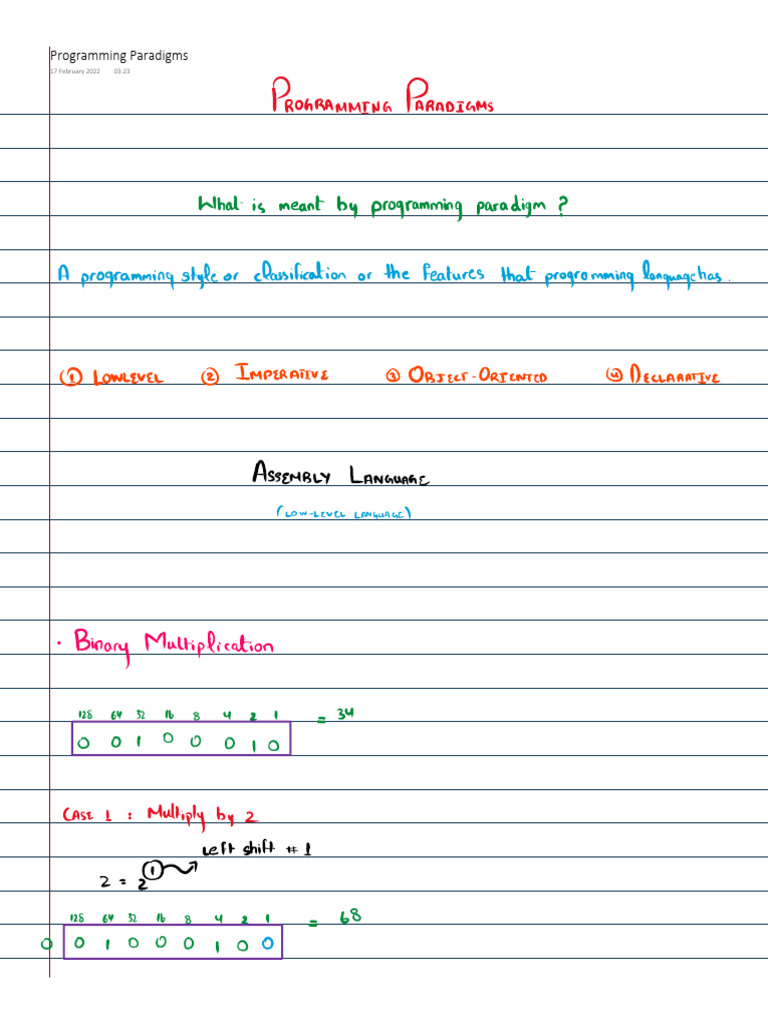 Programming Paradigms
17 February 2022 03:23
PROGRAMMING PARADIGMS
What is meant by programming paradigm ?
A programming style or classification or the features that programming language has.
① LOWLEVEL ② IMPERATIVE ③ OBJECT-ORIENTED ④ DECLARATIVE
ASSEMBLY LANGUAGE
(LOW-LEVEL LANGUAGE)
· Binary Multiplication
128 64 32 16 8 4 2 1 = 34
0 0 1 0 0 0 1 0
CASE 1 : Multiply by 2
Left shift # 1
2 = 2^1
128 64 32 16 8 4 2 1 = 68
0 0 1 0 0 0 1 0 0